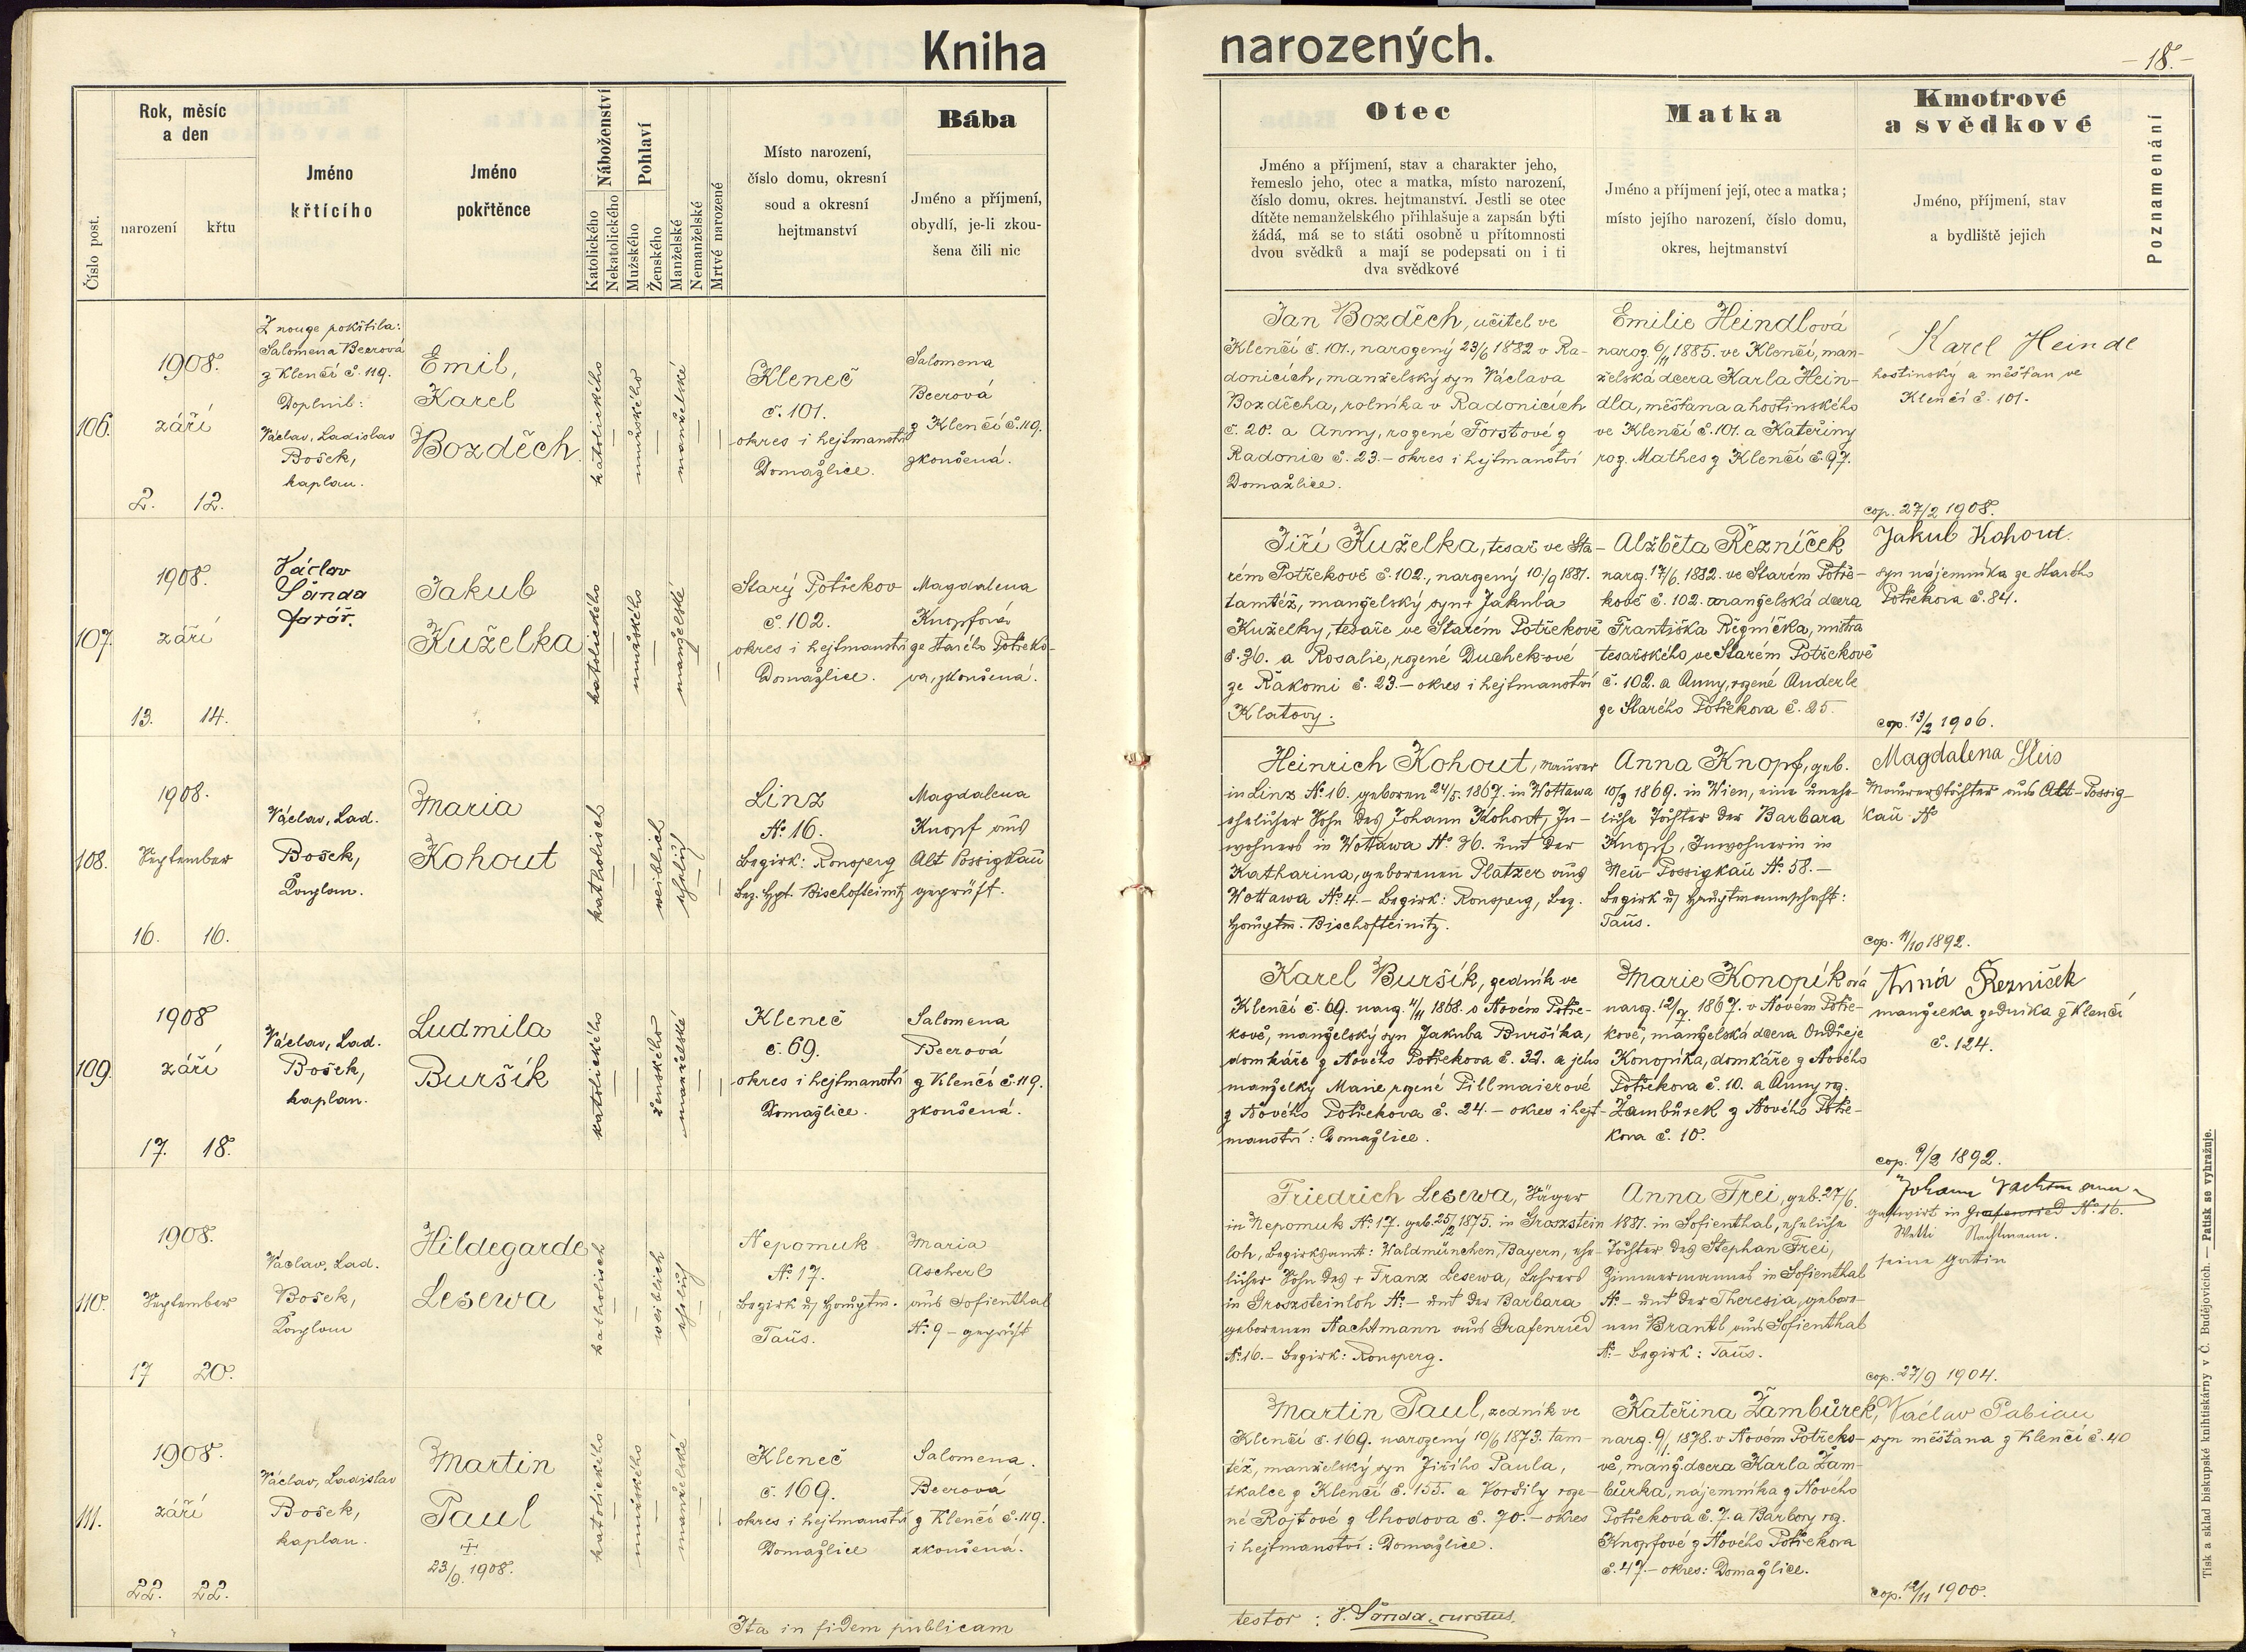 Kniha
narozených.
- 18. -
Rok, měsíc
a den
narození
křtu
Číslo post.
Jméno
křtícího
Jméno
pokřtěnce
Náboženství
Katolického
Nekatolického
Pohlaví
Mužského
Ženského
Manželské
Nemanželské
Mrtvé narozené
Místo narození,
číslo domu, okresní
soud a okresní
hejtmanství
Bába
Jméno a příjmení,
obydlí, je-li zkou-
šena čili nic
Otec
Jméno a příjmení, stav a charakter jeho,
řemeslo jeho, otec a matka, místo narození,
číslo domu, okres. hejtmanství. Jestli se otec
dítěte nemanželského přihlašuje a zapsán býti
žádá, má se to státi osobně u přítomnosti
dvou svědků a mají se podepsati on i ti
dva svědkové
Matka
Jméno a příjmení její, otec a matka;
místo jejího narození, číslo domu,
okres, hejtmanství
Kmotrové
a svědkové
Jméno, příjmení, stav
a bydliště jejich
Poznamenání
106.
1908.
září
2. 12.
Z nouze pokřtila:
Salomena Beerová
z Klenčí č. 119.
Doplnil:
Václav, Ladislav
Bošek,
kaplan.
Emil,
Karel
Bozděch.
katolického
mužského
manželské
Kleneč
č. 101.
okres i hejtmanství
Domažlice.
Salomena
Beerová
z Klenčí č. 119.
zkoušená.
Jan Bozděch, učitel ve
Klenčí č. 101., narozený 23/6 1882 v Ra-
donicích, manželský syn Václava
Bozděcha, rolníka v Radonicích
č. 20. a Anny, rozené Forstové z
Radonic č. 23. – okres i hejtmanství
Domažlice.
Emilie Heindlová
naroz. 6/11 1885. ve Klenčí, man-
želská dcera Karla Hein-
dla, měšťana a hostinského
ve Klenčí č. 101. a Kateřiny
roz. Mathes z Klenčí č. 97.
Karel Heindl
hostinský a měšťan ve
Klenčí č. 101.
cop. 27/2 1908.
107.
1908.
září
13. 14.
Václav
Šanda
farář.
Jakub
Kuželka
katolického
mužského
manželské
Starý Potřekov
č. 102.
okres i hejtmanství
Domažlice.
Magdalena
Knopfová
ze Starého Potřeko-
va, zkoušená.
Jiří Kuželka, tesař ve Sta-
rém Potřekově č. 102., narozený 10/9 1881.
tamtéž, manželský syn + Jakuba
Kuželky, tesaře ve Starém Potřekově
č. 36. a Rosalie, rozené Duchekové
ze Řakomi č. 23. – okres i hejtmanství
Klatovy.
Alžběta Řezníček
naroz. 17/6. 1882. ve Starém Potře-
kově č. 102. manželská dcera
Františka Řezníčka, mistra
tesařského ve Starém Potřekově
č. 102. a Anny, rozené Anderle
ze Starého Potřekova č. 25.
Jakub Kohout.
syn nájemníka ze Starého
Potřekova č. 84.
cop. 13/2 1906.
108.
1908.
September
16. 16.
Václav, Lad.
Bošek,
Kaplan.
Maria
Kohout
katholisch
weiblich
ehelich
Linz
No. 16.
Bezirk: Ronsperg
Bez. Hpt. Bischofteinitz
Magdalena
Knopf aus
Alt Possigkau
geprüft.
Heinrich Kohout, Maurer
in Linz No 16. geboren 24/5. 1867. in Wottawa
ehelicher Sohn des Johann Kohout, In-
wohners in Wottawa No. 36. und der
Katharina, geborenen Platzer aus
Wottawa No. 4. – Bezirk: Ronsperg, Bez.
Hauptm. Bischofteinitz.
Anna Knopf, geb.
10/3 1869. in Wien, eine unehe-
liche Tochter der Barbara
Knopf, Inwohnerin in
Neu-Possigkau No. 58. –
Bezirk u. Hauptmannschaft:
Taus.
Magdalena Sleis
Maurerstochter aus Alt-Possig-
kau No
cop. 11/10 1892.
109.
1908
září
17. 18.
Václav, Lad.
Bošek,
kaplan.
Ludmila
Buršík
katolického
ženského
manželské
Kleneč
č. 69.
okres i hejtmanství
Domažlice.
Salomena
Beerová
z Klenčí č. 119.
zkoušená.
Karel Buršík, zedník ve
Klenčí č. 69. naroz. 4/11 1868. v Novém Potře-
kově, manželský syn Jakuba Buršíka,
domkáře z Nového Potřekova č. 32. a jeho
manželky Marie rozené Pillmaierové
z Nového Potřekova č. 24. – okres i hejt-
manství: Domažlice.
Marie Konopíková
naroz. 12/7. 1867. v Novém Potře-
kově, manželská dcera Ondřeje
Konopíka, domkáře z Nového
Potřekova č. 10. a Anny roz.
Žambůrek z Nového Potře-
kova č. 10.
Anna Řezníček
manželka zedníka z Klenčí
č. 124.
cop. 9/2 1892.
110.
1908.
September
17 20.
Václav, Lad.
Bošek,
Kaplan
Hildegarde
Lesewa
katholisch
weiblich
ehelich
Nepomuk
No. 17.
Bezirk u. Hauptm.
Taus.
Maria
Ascherl
aus Sofienthal
No. 9 – geprüft
Friedrich Lesewa, Jäger
in Nepomuk No. 17. geb. 25/2 1875. in Groszstein-
loh, Bezirksamt: Waldmünchen, Bayern, ehe-
licher Sohn des + Franz Lesewa, Lehrers
in Groszsteinloh No. – und der Barbara
geborenen Nachtmann aus Grafenried
No. 16. – Bezirk: Ronsperg.
Anna Frei, geb. 27/6.
1881. in Sofienthal, eheliche
Tochter des Stephan Frei,
Zimmermannes in Sofienthal
No. – und der Theresia, gebore-
nen Brantl aus Sofienthal
No. – Bezirk: Taus.
Johann Nachtmann
gastwirt in Grafenried No. 16.
Wetti Nachtmann.
seine Gattin
cop. 27/9 1904.
111.
1908.
září
22. 22.
Václav, Ladislav
Bošek,
kaplan.
Martin
Paul
+
23/9. 1908.
katolického
mužského
manželské
Kleneč
č. 169.
okres i hejtmanství
Domažlice
Salomena
Beerová
z Klenčí č. 119.
zkoušená.
Martin Paul, zedník ve
Klenčí č. 169. narozený 19/6 1873. tam-
též, manželský syn Jiřího Paula,
tkalce z Klenčí č. 155. a Voršily roze-
né Rojtové z Chodova č. 70. – okres
i hejtmanství: Domažlice.
Kateřina Žambůrek,
naroz. 9/1. 1878. v Novém Potřeko-
vě, manž. dcera Karla Žam-
bůrka, nájemníka z Nového
Potřekova č. 7. a Barbory roz.
Knopfové z Nového Potřekova
č. 47. – okres: Domažlice.
Václav Pabian
syn měšťana z Klenčí č. 40
cop. 12/11 1900.
Ita in fidem publicam
testor: V. Šanda, curatus.
Tisk a sklad biskupské knihtiskárny v Č. Budějovicích. — Patisk se vyhražuje.